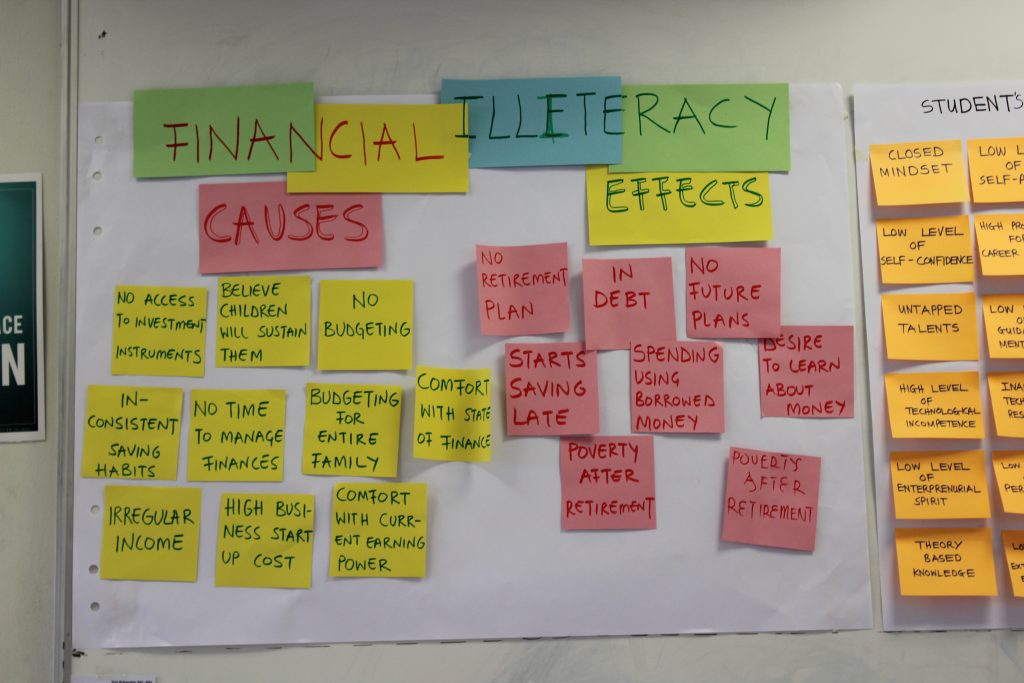 FINANCIAL ILLITERACY
CAUSES
EFFECTS
NO ACCESS
TO INVESTMENT
INSTRUMENTS
BELIEVE
CHILDREN
WILL SUSTAIN
THEM
NO
BUDGETING
IN-
CONSISTENT
SAVING
HABITS
NO TIME
TO MANAGE
FINANCES
BUDGETING
FOR
ENTIRE
FAMILY
COMFORT
WITH STATE
OF FINANCE
IRREGULAR
INCOME
HIGH BUSI-
NESS START
UP COST
COMFORT
WITH CURR-
ENT EARNING
POWER
NO
RETIREMENT
PLAN
IN
DEBT
NO
FUTURE
PLANS
STARTS
SAVING
LATE
SPENDING
USING
BORROWED
MONEY
DESIRE
TO LEARN
ABOUT
MONEY
POVERTY
AFTER
RETIREMENT
POVERTY
AFTER
RETIREMENT
STUDENT'S
CLOSED
MINDSET
LOW L
OF
SELF-A
LOW LEVEL
OF
SELF-CONFIDENCE
HIGH PRO
FOR
CAREER
UNTAPPED
TALENTS
LOW
GUID
MENT
HIGH LEVEL
OF
TECHNOLOGICAL
INCOMPETENCE
INA
TECH
RES
LOW LEVEL
OF
ENTERPRENURIAL
SPIRIT
LOW
PER
THEORY
BASED
KNOWLEDGE
LO
EXT
ACE
N